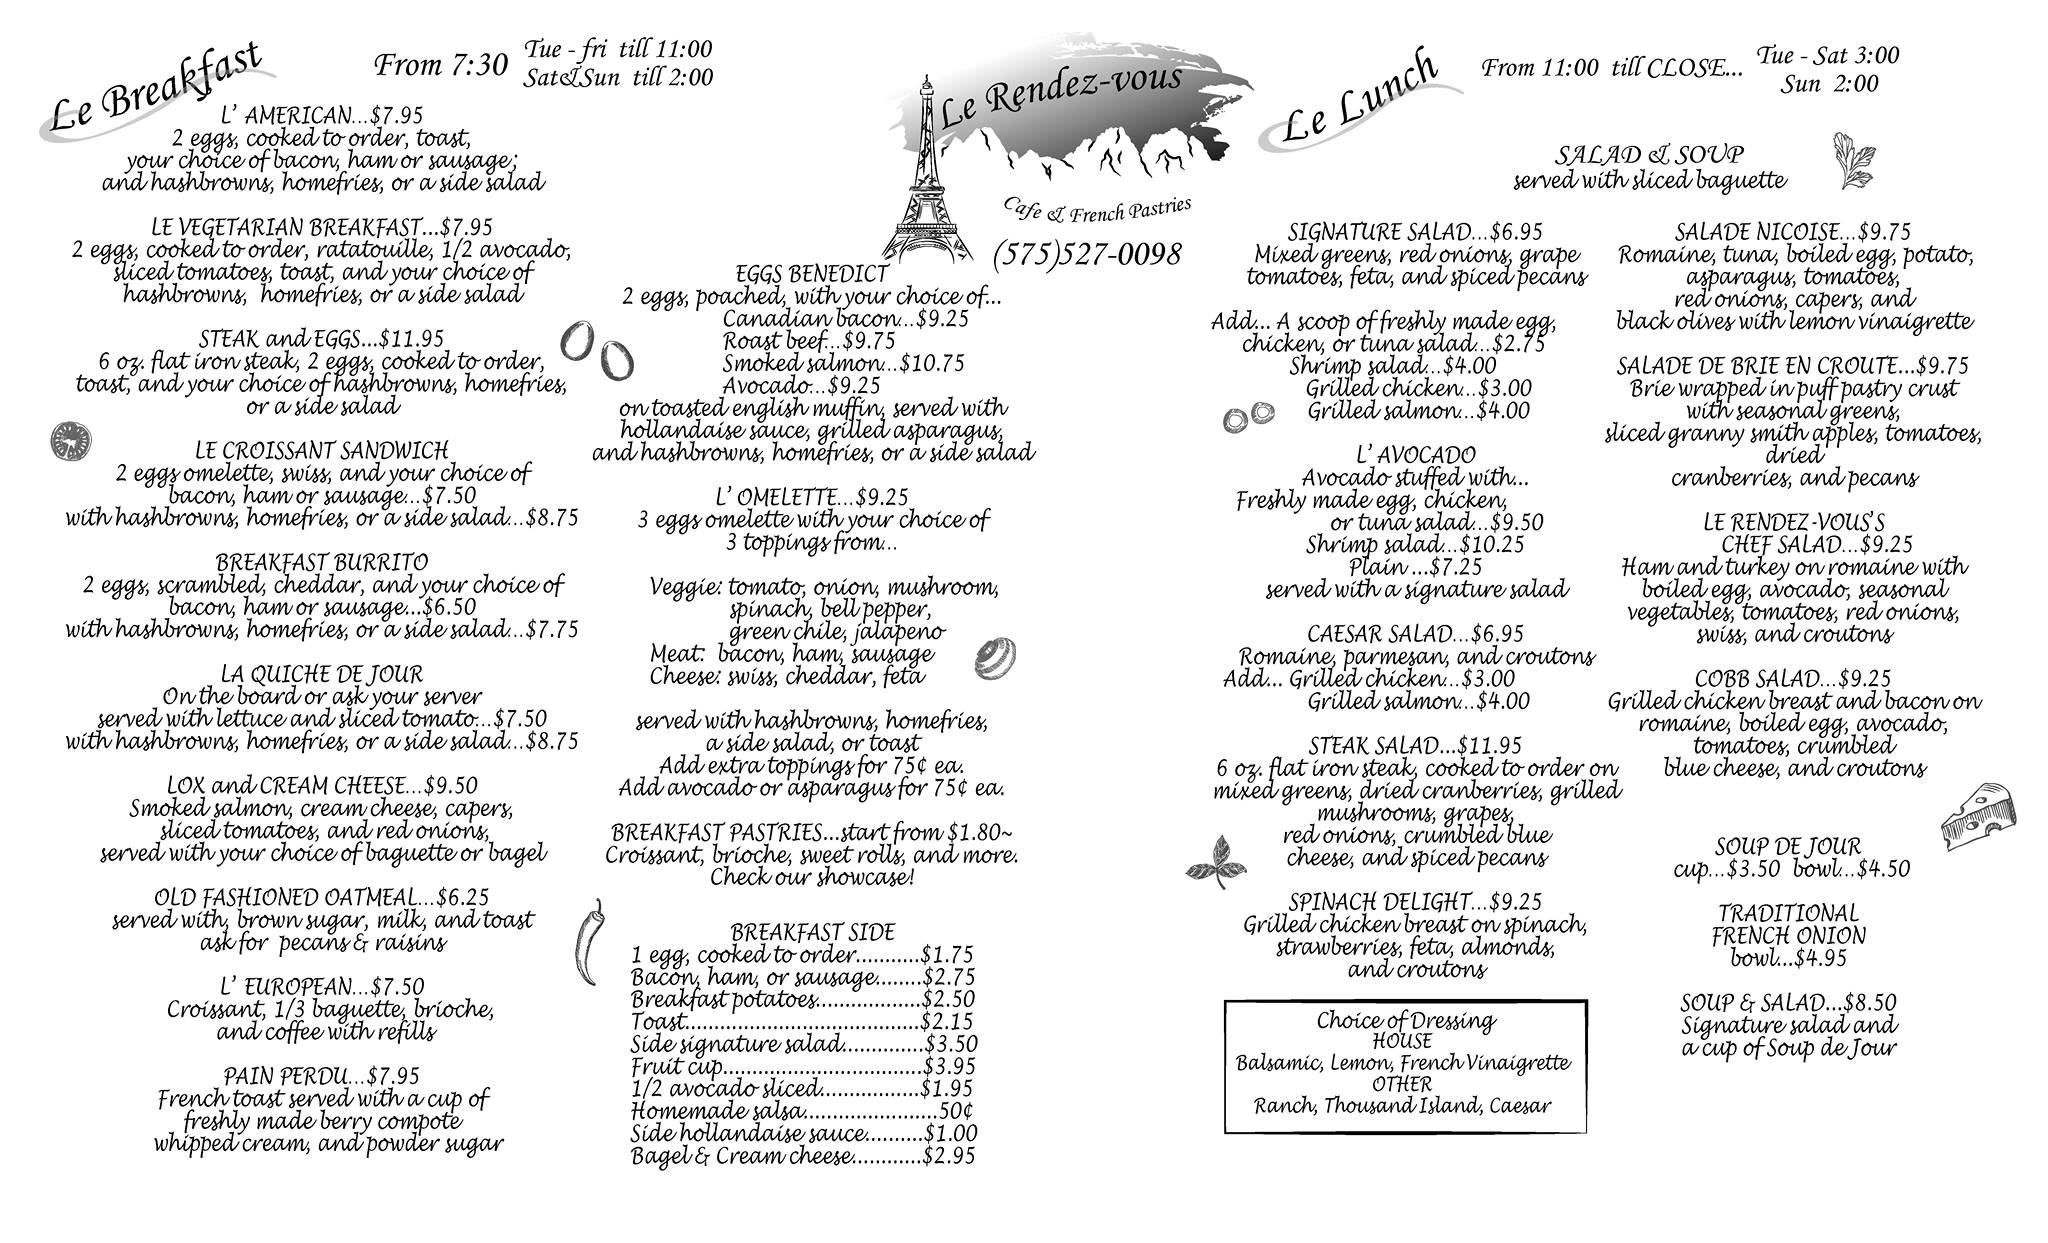 Le Breakfast
From 7:30
Tue - fri till 11:00
Sat&Sun till 2:00
L' AMERICAN...$7.95
2 eggs, cooked to order, toast,
your choice of bacon, ham or sausage;
and hashbrowns, homefries, or a side salad
LE VEGETARIAN BREAKFAST...$7.95
2 eggs, cooked to order, ratatouille, 1/2 avocado,
sliced tomatoes, toast, and your choice of
hashbrowns, homefries, or a side salad
STEAK and EGGS...$11.95
6 oz. flat iron steak, 2 eggs, cooked to order,
toast, and your choice of hashbrowns, homefries,
or a side salad
LE CROISSANT SANDWICH
2 eggs omelette, swiss, and your choice of
bacon, ham or sausage...$7.50
with hashbrowns, homefries, or a side salad...$8.75
BREAKFAST BURRITO
2 eggs, scrambled, cheddar, and your choice of
bacon, ham or sausage...$6.50
with hashbrowns, homefries, or a side salad...$7.75
LA QUICHE DE JOUR
On the board or ask your server
served with lettuce and sliced tomato...$7.50
with hashbrowns, homefries, or a side salad...$8.75
LOX and CREAM CHEESE...$9.50
Smoked salmon, cream cheese, capers,
sliced tomatoes, and red onions,
served with your choice of baguette or bagel
OLD FASHIONED OATMEAL...$6.25
served with, brown sugar, milk, and toast
ask for pecans & raisins
L' EUROPEAN...$7.50
Croissant, 1/3 baguette, brioche,
and coffee with refills
PAIN PERDU...$7.95
French toast served with a cup of
freshly made berry compote
whipped cream, and powder sugar
Le Rendez-vous
Cafe & French Pastries
(575)527-0098
EGGS BENEDICT
2 eggs, poached, with your choice of...
Canadian bacon...$9.25
Roast beef...$9.75
Smoked salmon...$10.75
Avocado...$9.25
on toasted english muffin, served with
hollandaise sauce, grilled asparagus,
and hashbrowns, homefries, or a side salad
L' OMELETTE...$9.25
3 eggs omelette with your choice of
3 toppings from...
Veggie: tomato, onion, mushroom,
spinach, bell pepper,
green chile, jalapeno
Meat: bacon, ham, sausage
Cheese: swiss, cheddar, feta
served with hashbrowns, homefries,
a side salad, or toast
Add extra toppings for 75¢ ea.
Add avocado or asparagus for 75¢ ea.
BREAKFAST PASTRIES...start from $1.80~
Croissant, brioche, sweet rolls, and more.
Check our showcase!
BREAKFAST SIDE
1 egg, cooked to order...........$1.75
Bacon, ham, or sausage........$2.75
Breakfast potatoes..................$2.50
Toast........................................$2.15
Side signature salad..............$3.50
Fruit cup..................................$3.95
1/2 avocado sliced.................$1.95
Homemade salsa.......................50¢
Side hollandaise sauce..........$1.00
Bagel & Cream cheese............$2.95
Le Lunch
From 11:00 till CLOSE...
Tue - Sat 3:00
Sun 2:00
SALAD & SOUP
served with sliced baguette
SIGNATURE SALAD...$6.95
Mixed greens, red onions, grape
tomatoes, feta, and spiced pecans
Add... A scoop of freshly made egg,
chicken, or tuna salad...$2.75
Shrimp salad...$4.00
Grilled chicken...$3.00
Grilled salmon...$4.00
L' AVOCADO
Avocado stuffed with...
Freshly made egg, chicken,
or tuna salad...$9.50
Shrimp salad...$10.25
Plain ...$7.25
served with a signature salad
CAESAR SALAD...$6.95
Romaine, parmesan, and croutons
Add... Grilled chicken...$3.00
Grilled salmon...$4.00
STEAK SALAD...$11.95
6 oz. flat iron steak, cooked to order on
mixed greens, dried cranberries, grilled
mushrooms, grapes,
red onions, crumbled blue
cheese, and spiced pecans
SPINACH DELIGHT...$9.25
Grilled chicken breast on spinach,
strawberries, feta, almonds,
and croutons
Choice of Dressing
HOUSE
Balsamic, Lemon, French Vinaigrette
OTHER
Ranch, Thousand Island, Caesar
SALADE NICOISE...$9.75
Romaine, tuna, boiled egg, potato,
asparagus, tomatoes,
red onions, capers, and
black olives with lemon vinaigrette
SALADE DE BRIE EN CROUTE...$9.75
Brie wrapped in puff pastry crust
with seasonal greens,
sliced granny smith apples, tomatoes,
dried
cranberries, and pecans
LE RENDEZ-VOUS'S
CHEF SALAD...$9.25
Ham and turkey on romaine with
boiled egg, avocado, seasonal
vegetables, tomatoes, red onions,
swiss, and croutons
COBB SALAD...$9.25
Grilled chicken breast and bacon on
romaine, boiled egg, avocado,
tomatoes, crumbled
blue cheese, and croutons
SOUP DE JOUR
cup...$3.50 bowl...$4.50
TRADITIONAL
FRENCH ONION
bowl...$4.95
SOUP & SALAD...$8.50
Signature salad and
a cup of Soup de Jour